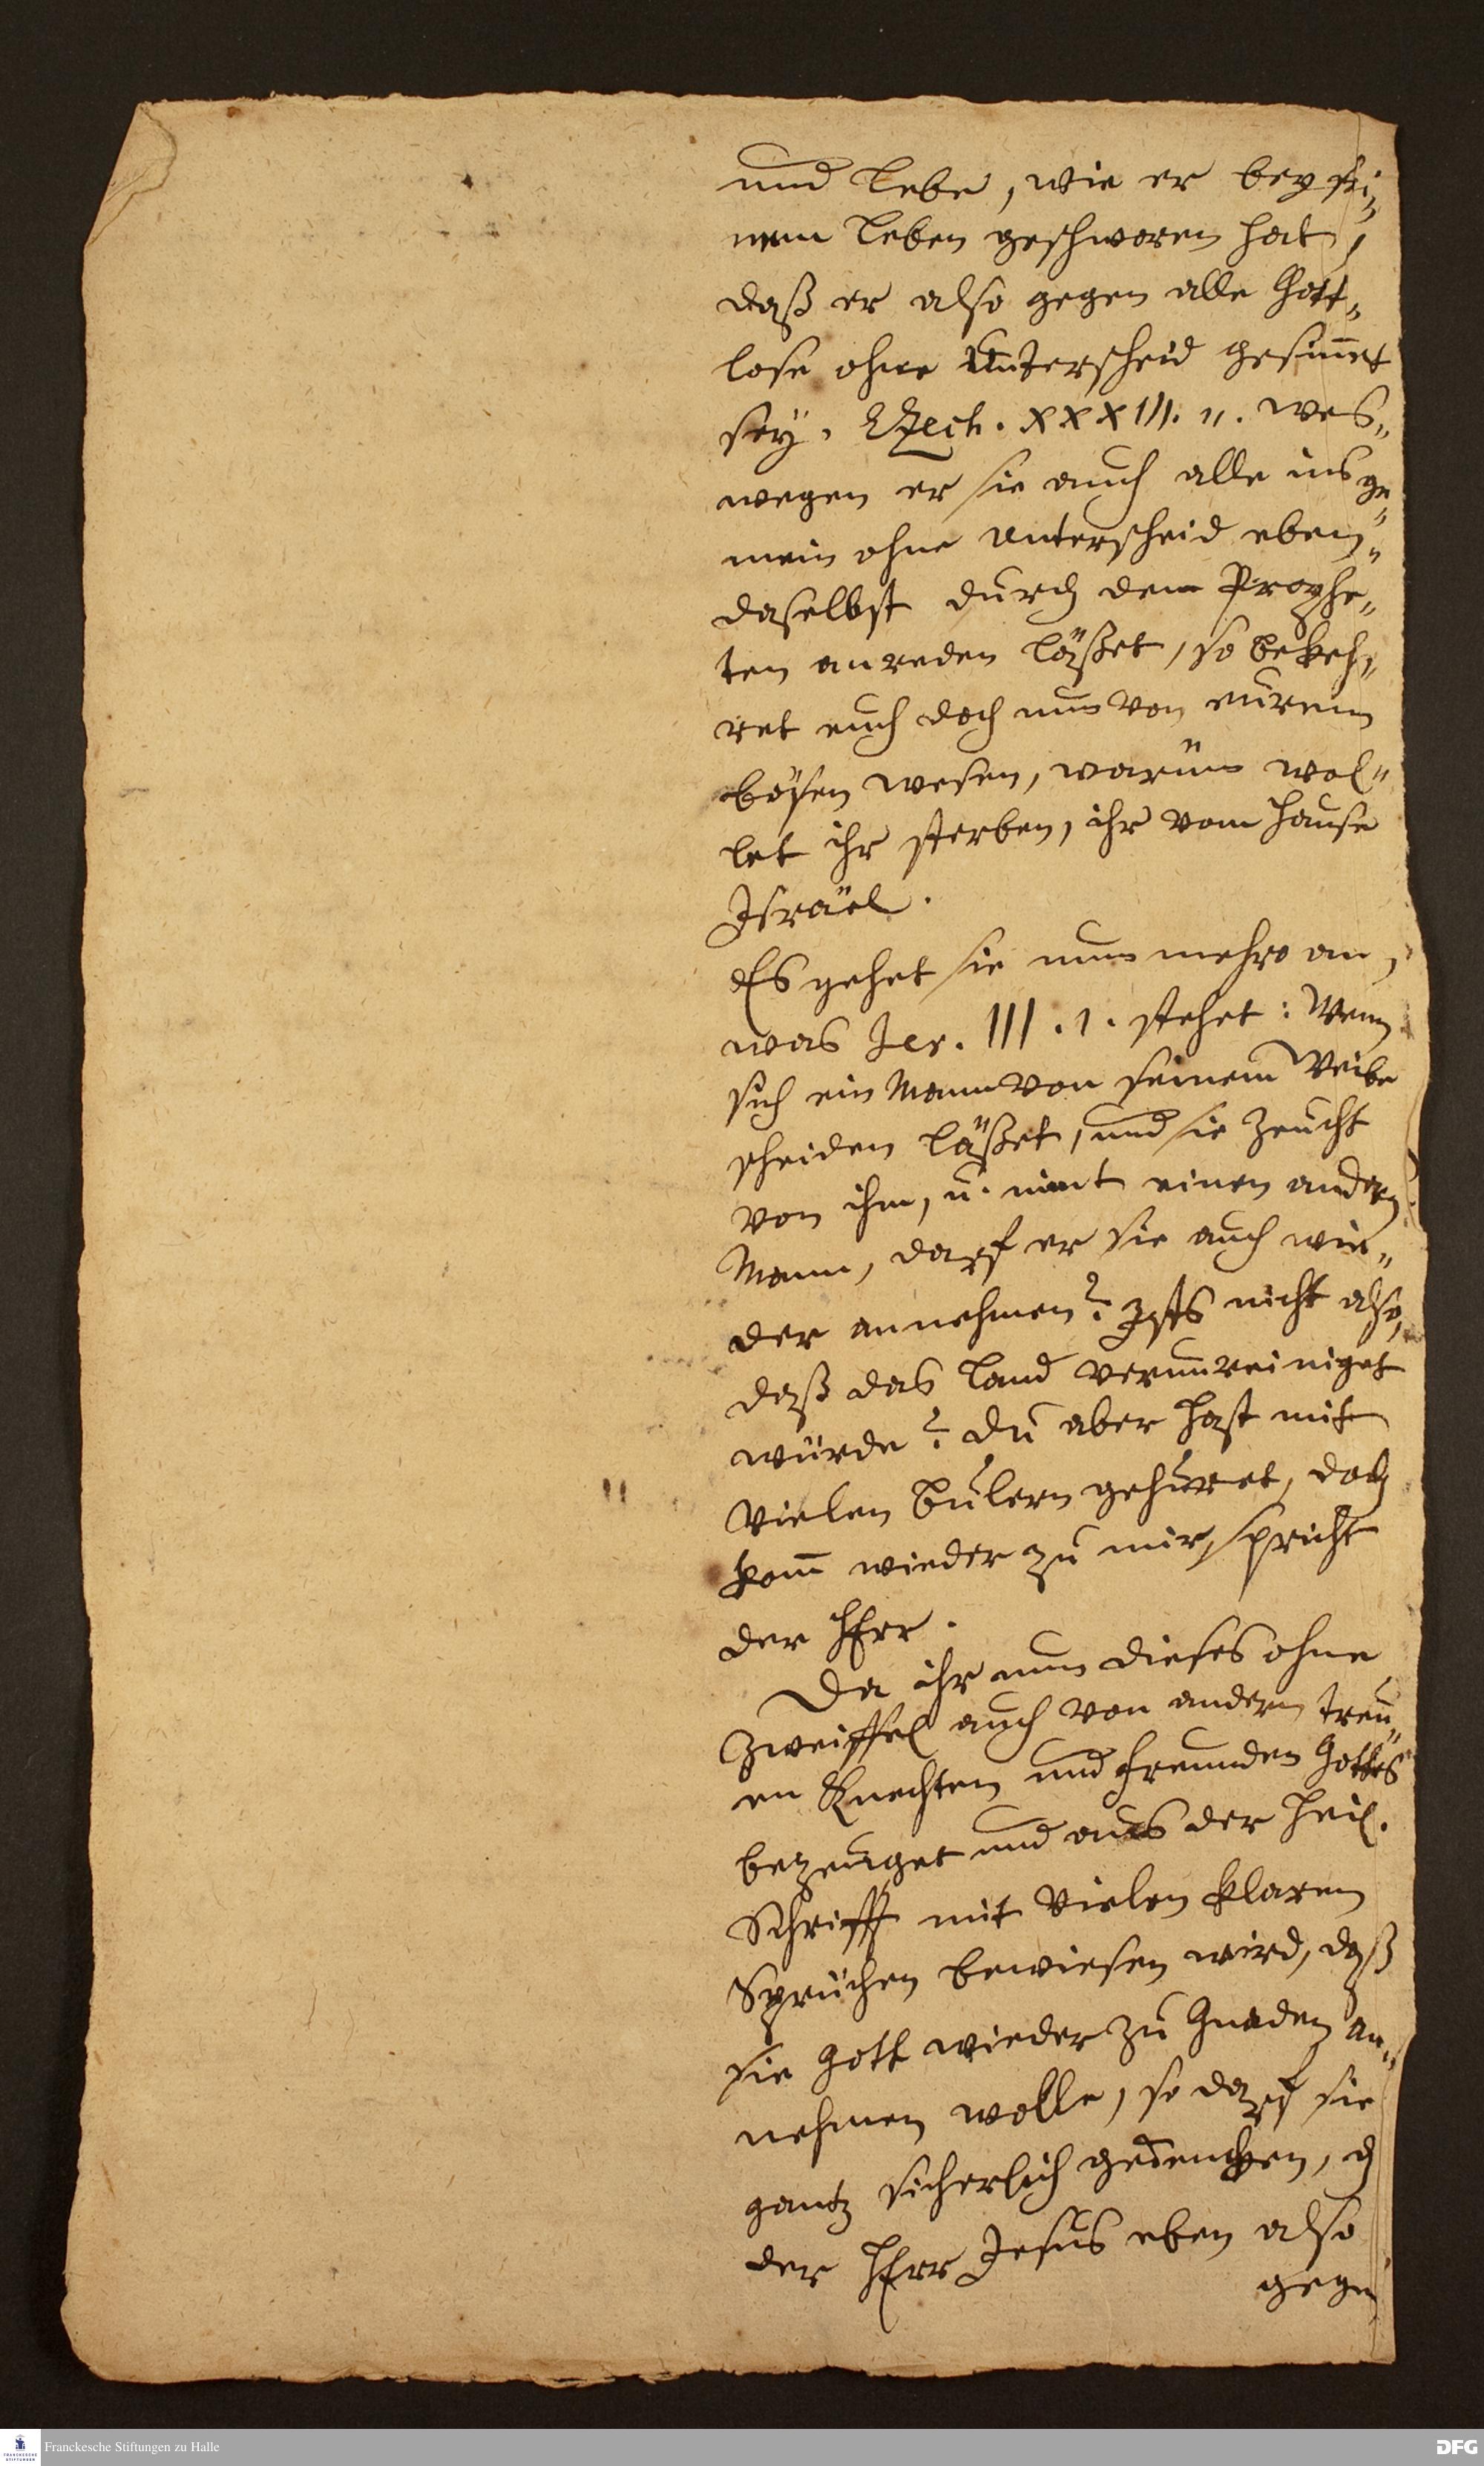 und lebe, wie er bey sei„
nem Leben geschworen hat,
daß er also gegen alle Gott„
lose ohne Unterscheid gesinnet
sey. Ezech. XXXIII. 11. wes„
wegen er sie auch alle ins ge„
mein ohne Unterscheid eben„
daselbst durch den Prophe„
ten anreden läßet, so bekeh„
ret euch doch nun von eurem
bösen wesen, warüm wol„
let ihr sterben, ihr vom Hause
Israël.
Es gehet sie nunmehro an,
was Jer. III. 1. stehet: Wenn
sich ein Mann von seinem Weibe
scheiden läßet, und sie zeucht
von ihm, u. nimt einen andern
Mann, darf er sie auch wie„
der annehmen? Ists nicht also,
daß das Land verunreiniget
würde? Du aber hast mit
vielen Bulern gehuret, doch
kom̅ wieder zu mir, spricht
der HErr.
Da ihr nun dieses ohne
Zweiffel auch von andern treu„
en Knechten und Freunden Gottes
bezeuget und aus der Heil.
Schrifft mit vielen klaren
Sprüchen bewiesen wird, daß
sie Gott wieder zu Gnaden an„
nehmen wolle, so darf sie
gantz sicherlich gedencken, dz
der HErr Jesus eben also
gegen
Franckesche Stiftungen zu Halle
DFG